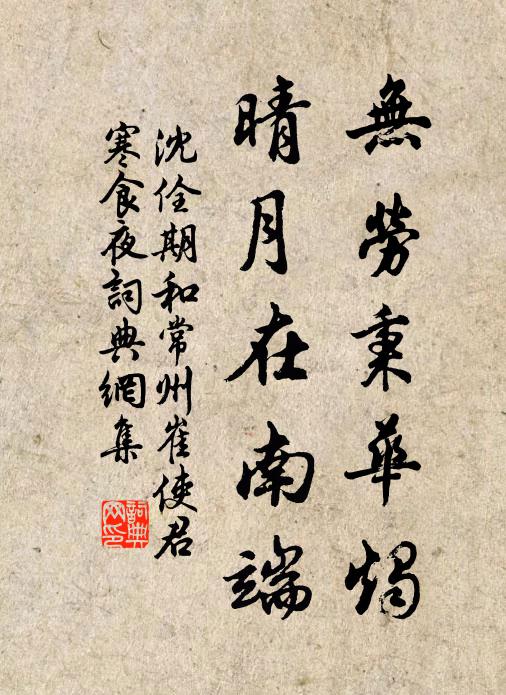 無勞秉華燭
晴月在南端
沈佺期和常州崔使君
寒食夜詞典網集
詞典網印